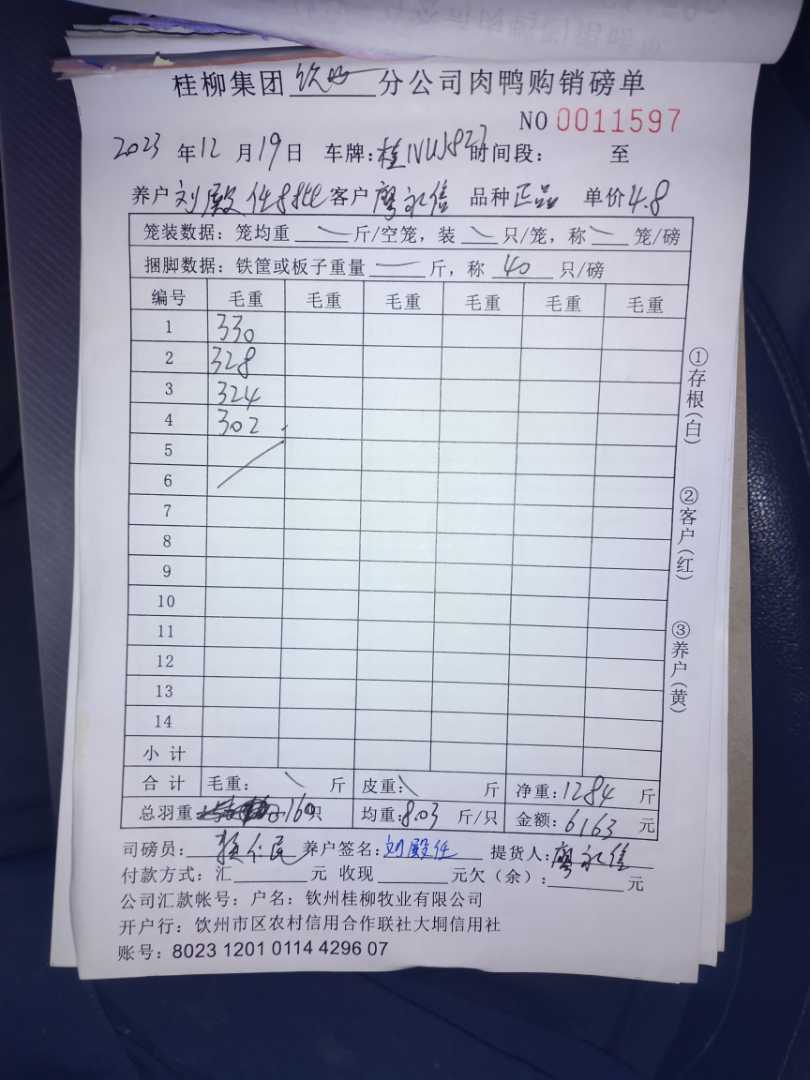 桂柳集团 钦州 分公司肉鸭购销磅单
NO 0011597
2023 年 12 月 19 日 车牌:桂 时间段: 至
养户 刘殿任 客户 廖永信 品种 正品 单价 4.8
笼装数据: 笼均重 斤/空笼, 装 只/笼, 称 笼/磅
捆脚数据: 铁筐或板子重量 斤, 称 40 只/磅
编号 毛重 毛重 毛重 毛重 毛重 毛重
1 330
2 328
3 324
4 302
5
6
7
8
9
10
11
12
13
14
小 计
合 计 毛重: 斤 皮重: 斤 净重: 1284 斤
总羽重 160 只 均重: 8.03 斤/只 金额: 6163 元
司磅员: 养户签名: 刘殿任 提货人: 廖永信
付款方式: 汇 元 收现 元欠(余): 元
公司汇款帐号: 户名: 钦州桂柳牧业有限公司
开户行: 饮州市区农村信用合作联社大垌信用社
账号: 8023 1201 0114 4296 07
①存根(白)
②客户(红)
③养户(黄)